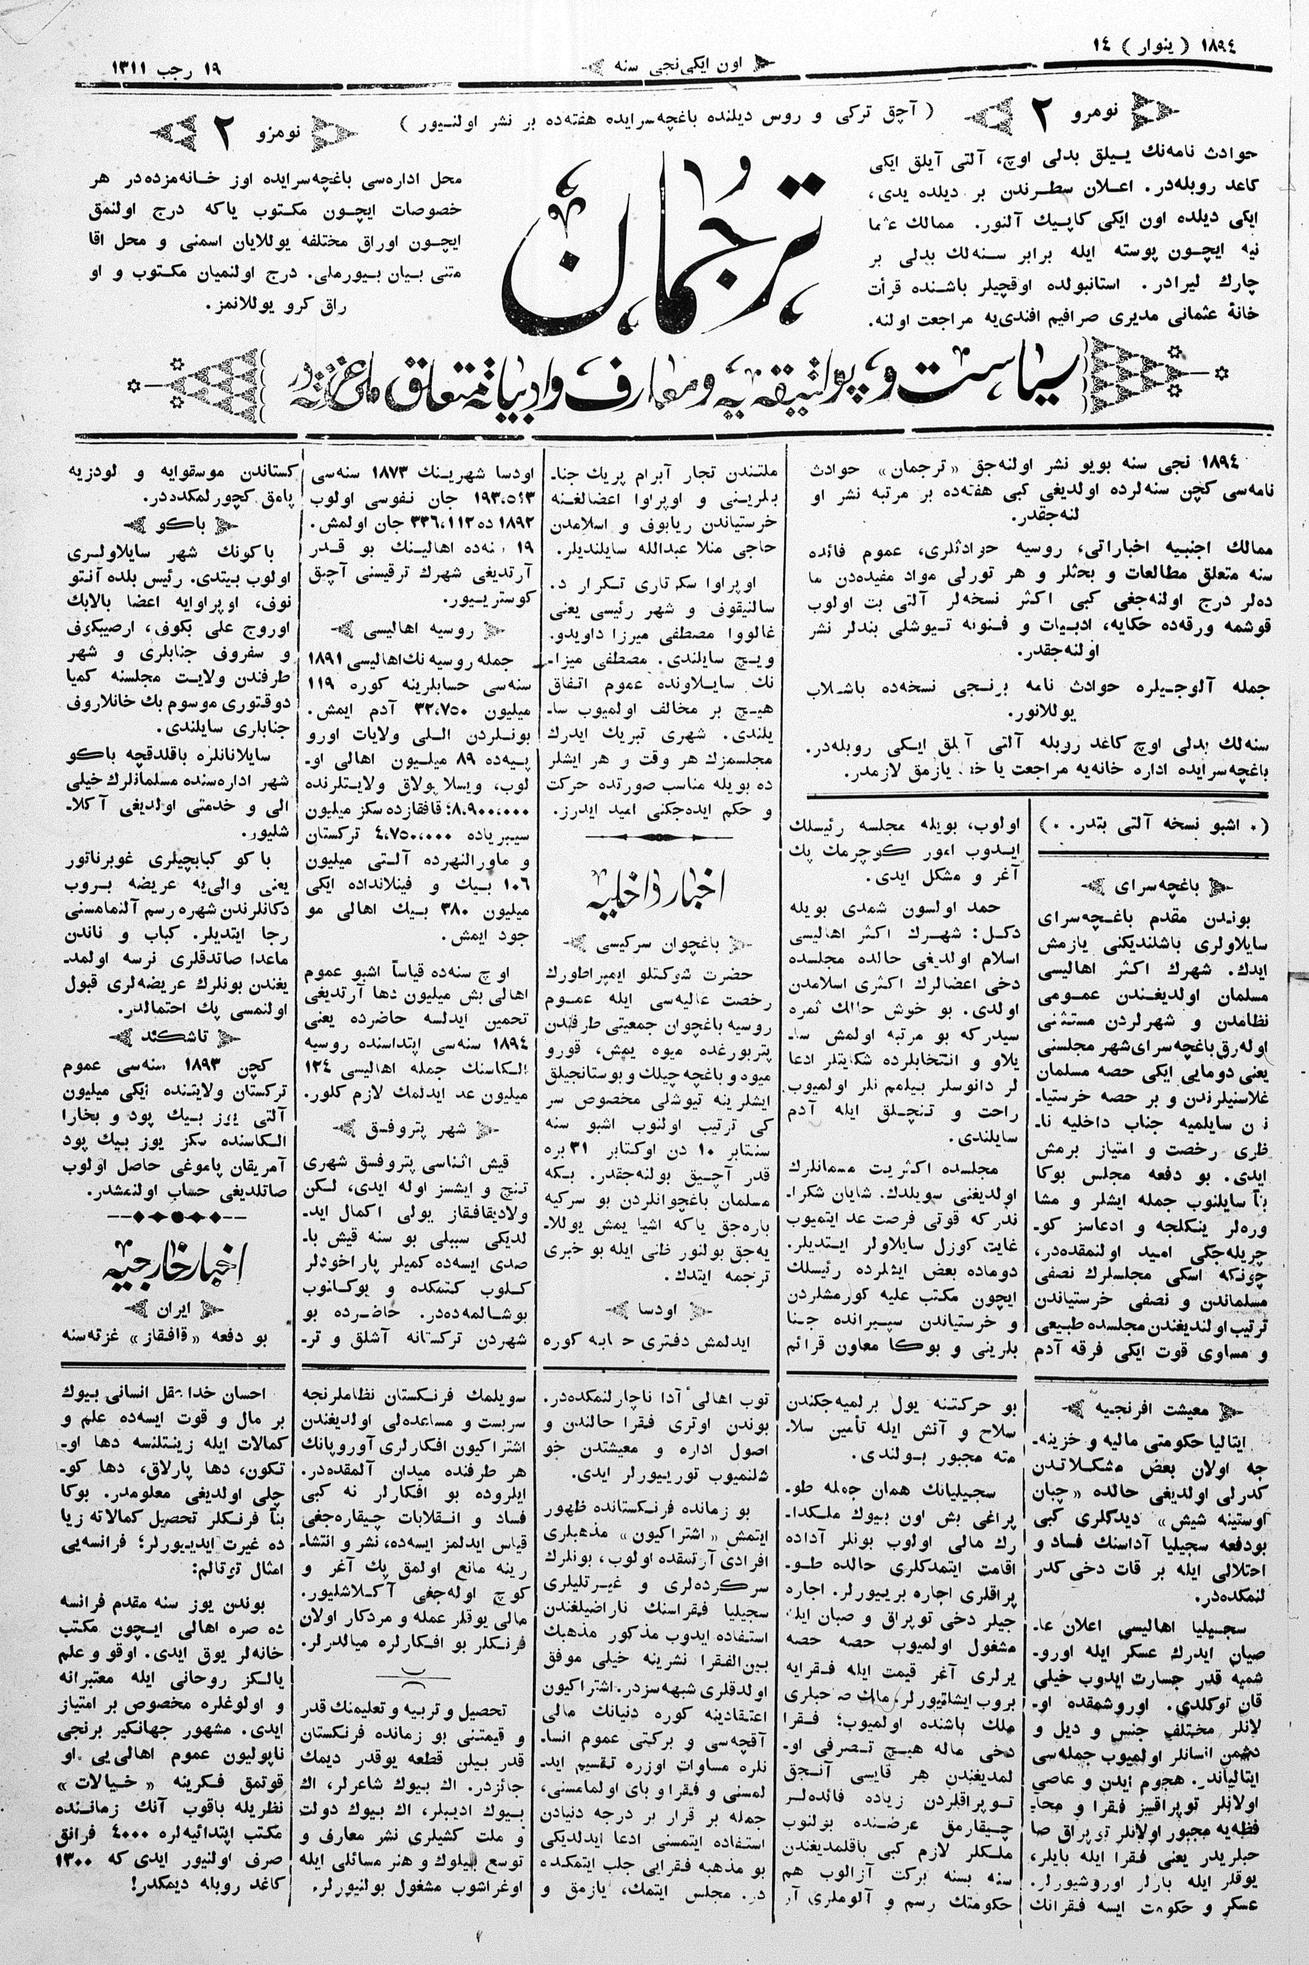 ١٨٩٤ ( ينوار ) ١٤
اون ايكى نجى سنه
١٩ رجب ١٣١١
نومرو ٢
( آچق تركى و روس ديلنده باغچه‌سرايده هفته‌ده بر نشر اولنيور )
نومرو ٢
حوادث نامه‌نك ييلق بدلى اوچ، آلتى آيلق ايكى
كاغد روبله‌در. اعلان سطرندن بر ديلده يدى،
ايكى ديلده اون ايكى كاپيك آلنور. ممالك عثما
نيه ايچون پوسته ايله برابر سنه‌لك بدلى بر
چارك ليرادر. استانبولده اوقچيلر باشنده قرأت
خانۀ عثمانى مديرى صرافيم افندى‌يه مراجعت اولنه.
ترجمان
محل اداره‌سى باغچه‌سرايده اوز خانه‌مزده‌در هر
خصوصات ايچون مكتوب ياكه درج اولنمق
ايچون اوراق مختلفه يوللايان اسمنى و محل اقا
متنى بيان بيورملى. درج اولنميان مكتوب و او
راق كرو يوللانمز.
سياست و پولتيقه‌يه و معارف و ادبياته متعلق ملى غزته‌در
١٨٩٤ نجى سنه بويو نشر اولنه‌جق «ترجمان» حوادث
نامه‌سى كچن سنه‌لرده اولديغى كبى هفته‌ده بر مرتبه نشر او
لنه‌جقدر.
ممالك اجنبيه اخباراتى، روسيه حوادثلرى، عموم فائده
سنه متعلق مطالعات و بحثلر و هر تورلى مواد مفيده‌دن ما
ده‌لر درج اولنه‌جغى كبى اكثر نسخه‌لر آلتى بت اولوب
قوشمه ورقه‌ده حكايه، ادبيات و فنونه تيوشلى بندلر نشر
اولنه‌جقدر.
جمله آلوجيلره حوادث نامه برنجى نسخه‌ده باشلاب
يوللانور.
سنه‌لك بدلى اوچ كاغد روبله آلتى آيلق ايكى روبله‌در.
باغچه‌سرايده اداره خانه‌يه مراجعت يازمق لازمدر.
(• اشبو نسخه آلتى بتدر. •)
باغچه سراى
بوندن مقدم باغچه‌سراى
سايلاولرى باشلنديكنى يازمش
ايدك. شهرك اكثر اهاليسى
مسلمان اولديغندن عمومى
نظامدن و شهرلردن مستثنى
اوله‌رق باغچه‌سراى شهر مجلسنى
يعنى دومايى ايكى حصه مسلمان
غلاسنيلرندن و بر حصه خرستيا-
ندن سايلميه جناب داخليه نا-
ظرى رخصت و امتياز برمش
ايدى. بو دفعه مجلس بوكا
بنأ سايلنوب جمله ايشلر و مشا
وره‌لر ينكلجه و ادعاسز كو-
چريله‌جكى اميد اولنمقده‌در،
چونكه اسكى مجلسلرك نصفى
مسلماندن و نصفى خرستياندن
ترتيب اولنديغندن مجلسده طبيعى
و مساوى قوت ايكى فرقه آدم
اولوب، بويله مجلسه رئيسلك
ايدوب امور كوچرمك پك
آغر و مشكل ايدى.
حمد اولسون شمدى بويله
دكل: شهرك اكثر اهاليسى
اسلام اولديغى حالده مجلسده
دخى اعضالرك اكثرى اسلامدن
اولدى. بو خوش حالك ثمره
سيدركه بو مرتبه اولمش سا-
يلاو و انتخابلرده شكايتلر ادعا
لر دانوسلر بيلمم نلر اولميوب
راحت و تنچلق ايله آدم
سايلندى.
مجلسده اكثريت مسلمانلرك
اولديغنى سويلدك. شايان شكرا-
ندر كه قوتى فرصت عد ايتميوب
غايت كوزل سايلاولر ايتديلر.
دوماده بعض ايشلرده رئيسلك
ايچون مكتب عليه كورمشلردن
و خرستياندن سپيرانده جنا
بلرينى و بوكا معاون قرائم
ملتندن تجار آبرام پريك جنا-
بلرينى و اوپراوا اعضالغنه
خرستياندن ريابوف و اسلامدن
حاجى منلا عبدالله سايلنديلر.
اوپراوا سكرتارى تكرار د.
سالنيقوف و شهر رئيسى يعنى
غالووا مصطفى ميرزا داويدو-
ويچ سايلندى. مصطفى ميرزا-
نك سايلاونده عموم اتفاق
هيچ بر مخالف اولميوب سا-
يلندى. شهرى تبريك ايدرك
مجلسمزك هر وقت و هر ايشلر
ده بويله مناسب صورتده حركت
و حكم ايده‌جكنى اميد ايدرز.
اخبار داخليه
باغچوان سركيسى
حضرت شوكتلو ايمپراطورك
رخصت عاليه‌سى ايله عموم
روسيه باغچوان جمعيتى طرفندن
پتربورغده ميوه يمش، قورو
ميوه و باغچه چيلك و بوستانجيلق
ايشلرينه تيوشلى مخصوص سر
كى ترتيب اولنوب اشبو سنه
سنتابر ١٠ دن اوكتابر ٣١ بره
قدر آچيق بولنه‌جقدر. بكه
مسلمان باغچوانلردن بو سركيه
باره‌جق ياكه اشيا يمش يوللا-
يه‌جق بولنور ظنى ايله بو خبرى
ترجمه ايتدك.
اودسا
ايدلمش دفترى حسابه كوره
اودسا شهرينك ١٨٧٣ سنه‌سى
١٩٣،٥٤٣ جان نفوسى اولوب
١٨٩٢ ده ٣٣٦،١١٢ جان اولمش.
١٩ سنه‌ده اهالينك بو قدر
آرتديغى شهرك ترقيسنى آچيق
كوستريور.
روسيه اهاليسى
جمله روسيه نك اهاليسى ١٨٩١
سنه‌سى حسابلرينه كوره ١١٩
ميليون ٣٢،٧٥٠ آدم ايمش.
بونلردن اللى ولايات اورو
پيه‌ده ٨٩ ميليون اهالى او-
لوب، ويسلا بويلاق ولايتلرنده
٨،٩٠٠،٠٠٠؛ قافقازده سكز ميليون
سيبرياده ٤،٧٥٠،٠٠٠ تركستان
و ماورالنهرده آلتى ميليون
١٠٦ بيك و فينلانداده ايكى
ميليون ٣٨٠ بيك اهالى مو
جود ايمش.
اوچ سنه‌ده قياساً اشبو عموم
اهالى بش ميليون دها آرتديغى
تحمين ايدلسه حاضرده يعنى
١٨٩٤ سنه‌سى ابتداسنده روسيه
الكاسنك جمله اهاليسى ١٢٤
ميليون عد ايدلمك لازم كلور.
شهر پتروفسق
قيش اثناسى پتروفسق شهرى
تنچ و ايشسز اوله ايدى، لكن
ولاديقافقاز يولى اكمال ايد-
لديكى سببلى بو سنه قيش با-
صدى ايسه‌ده كميلر پاراخودلر
كلوب كتمكده و بوكانوب
بوشالمه‌ده‌در. حاضرده بو
شهردن تركستانه آشلق و تر-
كستاندن موسقوايه و لودزيه
پامق كچورلمكددر.
باكو
باكونك شهر سايلاولرى
اولوب بيتدى. رئيس بلده آنتو
نوف، اوپراوايه اعضا بالابك
اوروج على بكوف، ارصيبكوف
و سفروف جنابلرى و شهر
طرفندن ولايت مجلسنه كميا
دوقتورى موسوم بك خانلاروف
جنابلرى سايلندى.
سايلانانلره باقلدقچه باكو
شهر اداره‌سنده مسلمانلرك خيلى
الى و خدمتى اولديغى آكلا-
شليور.
باكو كبابچيلرى غوبرناتور
يعنى والى‌يه عريضه بروب
دكانلرندن شهره رسم آلنمامسنى
رجا ايتديلر. كباب و ناندن
ماعدا صاتدقلرى نرسه اولمد-
يغندن بونلرك عريضه‌لرى قبول
اولنمسى پك احتمالدر.
تاشكند
كچن ١٨٩٣ سنه‌سى عموم
تركستان ولايتنده ايكى ميليون
آلتى يوز بيك پود و بخارا
الكاسنده سكز يوز بيك پود
آمريقان پاموغى حاصل اولوب
صاتلديغى حساب اولنمشدر.
اخبار خارجيه
ايران
بو دفعه «قافقاز» غزته‌سنه
معيشت افرنجيه
ايتاليا حكومتى ماليه و خزينه-
جه اولان بعض مشكلاتدن
كدرلى اولديغى حالده «چبان
اوستينه شيش» ديدكلرى كبى
بودفعه سجيليا آداسنك فساد و
احتلالى ايله بر قات دخى كدر
لنمكده‌در.
سجيليا اهاليسى اعلان عا-
صيان ايدرك عسكر ايله اورو-
شميه قدر جسارت ايدوب خيلى
قان توكلدى. اوروشمقده او-
لانلر مختلف جنس و ديل و
دشمن انسانلر اولميوب جمله‌سى
ايتالياندر. هجوم ايدن و عاصى
اولانلر توپراقسز فقرا و محا-
فظه‌يه مجبور اولانلر توپراق صا
حبلريدر يعنى فقرا ايله بايلر،
يوقلر ايله بارلر اوروشيورلر.
عسكر و حكومت ايسه فقرانك
بو حركتنه يول برلميه‌جكندن
سلاح و آتش ايله تأمين سلا-
مته مجبور بولندى.
سجيليانك همان جمله طو-
پراغى بش اون بيوك ملكدا-
رك مالى اولوب بونلر آداده
اقامت ايتمدكلرى حالده طو-
پراقلرى اجاره بريورلر. اجاره
جيلر دخى توپراق و صبان ايله
مشغول اولميوب حصه حصه
يرلرى آغر قيمت ايله فقرايه
بروب ايشلتيورلر، مالك صاحبلرى
ملك باشنده اولميوب؛ فقرا
دخى ماله هيچ تصرفى او-
لمديغندن هر قايسى آنجق
توپراقلردن زياده فائده‌لر
چيقارمق عرضنده بولنوب
ملكلر لازم كبى باقلمديغندن
سنه بسنه بركت آزالوب هم
حكومتك رسم و آلوملرى آر
توب اهالى آدا ناچارلنمكده‌در.
بوندن اوترى فقرا حالندن و
اصول اداره و معيشتدن خو
شلنميوب توريورلر ايدى.
بو زمانده فرنكستانده ظهور
ايتمش «اشتراكيون» مذهبلرى
افرادى آرتمقده اولوب، بونلرك
سركرده‌لرى و غيرتليلرى
سجيليا فقراسنك ناراضيلغندن
استفاده ايدوب مذكور مذهبك
بين‌الفقرا نشرينه خيلى موفق
اولدقلرى شبهه سزدر. اشتراكيون
اعتقادينه كوره دنيانك مالى
آقچه‌سى و بركتى عموم انسا-
نلره مساوات اوزره تقسيم ايد-
لمسنى و فقرا و باى اولمامسنى،
جمله بر قرار بر درجه دنيادن
استفاده ايتمسنى ادعا ايدلديكى
بو مذهبه فقرايى جلب ايتمكده
در. مجلس ايتمك، يازمق و
سويلمك فرنكستان نظاملرنجه
سربست و مساعده‌لى اولديغندن
اشتراكيون افكارلرى آوروپانك
هر طرفنده ميدان آلمقده‌در.
ايلروده بو افكارلر نه كبى
فساد و انقلابات چيقاره‌جغى
قياس ايدلمز ايسه‌ده، نشر و انتشا
رينه مانع اولمق پك آغر و
كوچ اوله‌جغى آكلاشليور.
مالى يوقلر عمله و مردكار اولان
فرنكلر بو افكارلره ميالدرلر.
تحصيل و تربيه و تعليمنك قدر
و قيمتنى بو زمانده فرنكستان
قدر بيلن قطعه يوقدر ديمك
جائزدر. اك بيوك شاعرلر، اك
بيوك اديبلر، اك بيوك دولت
و ملت كشيلرى نشر معارف و
توسع بيلوك و هنر مسائلى ايله
اوغراشوب مشغول بولنيورلر.
احسان خدا عقل انسانى بيوك
بر مال و قوت ايسه‌ده علم و
كمالات ايله زينتلنسه دها او-
تكون، دها پارلاق، دها كو-
چلى اولديغى معلومدر. بوكا
بنأ فرنكلر تحصيل كمالاته زيا
ده غيرت ايدييورلر؛ فرانسه‌يى
امثال توتالم:
بوندن يوز سنه مقدم فرانسه
ده صره اهالى ايچون مكتب
خانه‌لر يوق ايدى. اوقو و علم
يالكز روحانى ايله معتبرانه
و اولوغلره مخصوص بر امتياز
ايدى. مشهور جهانگير برنجى
ناپوليون عموم اهالى‌يى او
قوتمق فكرينه «خيالات»
نظريله باقوب آنك زماننده
مكتب ابتدائيه‌لره ٤٠٠٠ فرانق
صرف اولنيور ايدى كه ١٣٠٠
كاغد روبله ديمكدر!